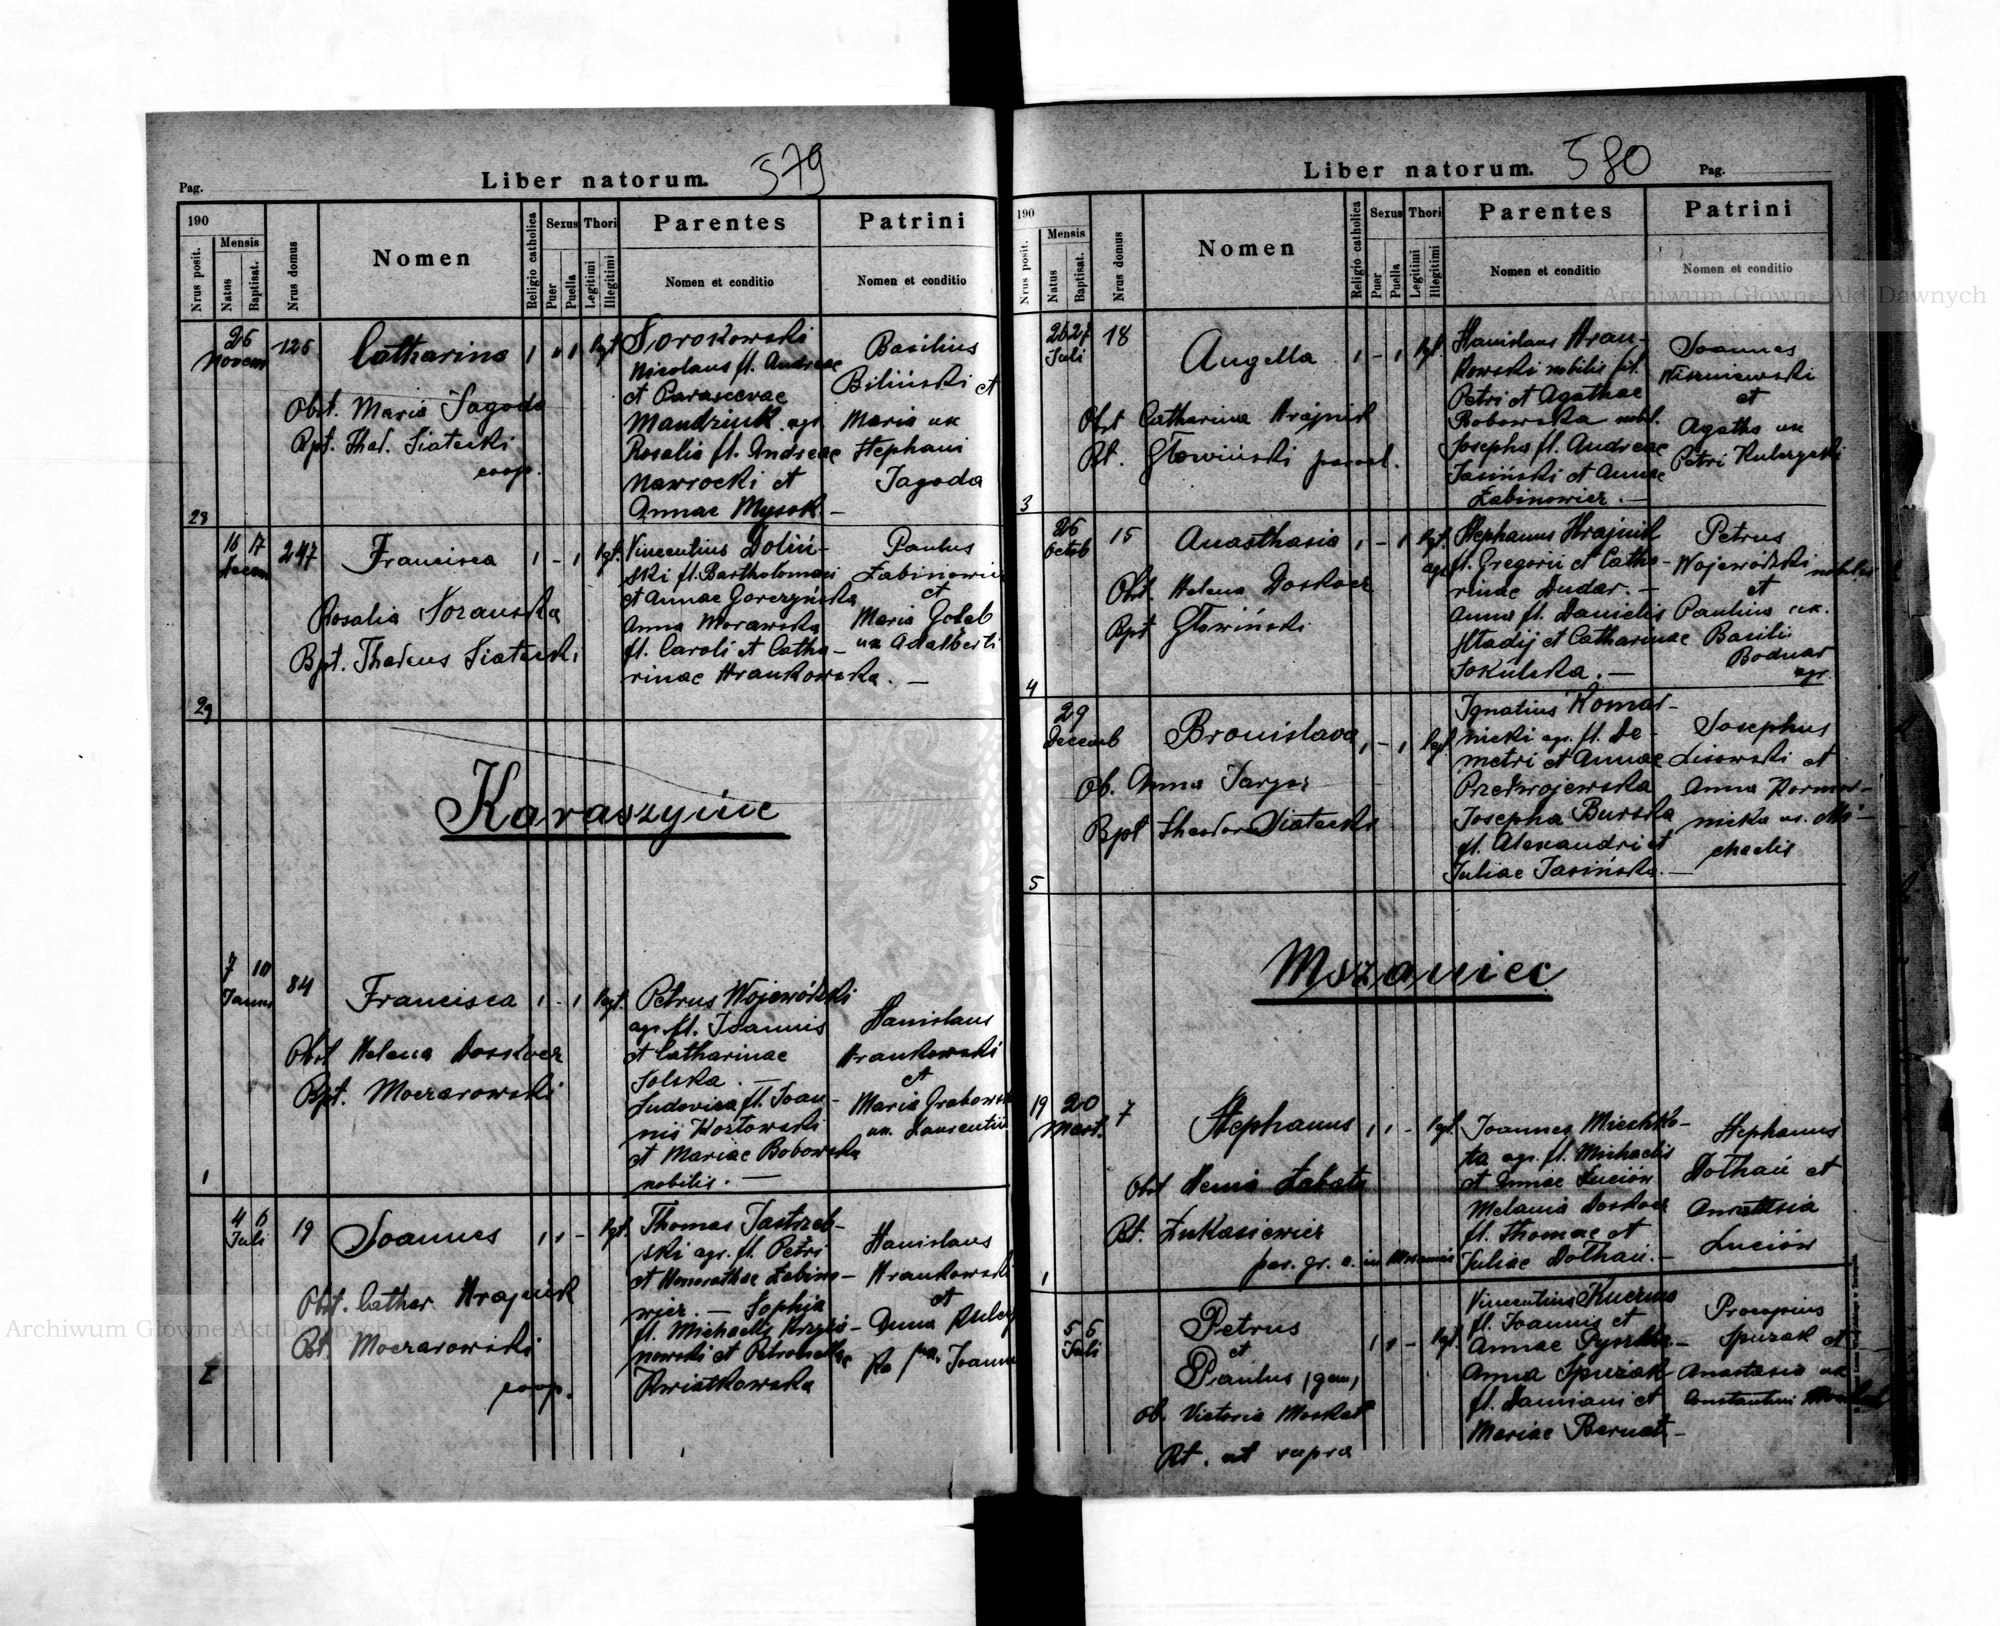 Pag.
Liber natorum.
579
190
Nrus posit.
Mensis
Natus
Baptisat.
Nrus domus
Nomen
Religio catholica
Sexus
Puer
Puella
Thori
Legitimi
Illegitimi
Parentes
Nomen et conditio
Patrini
Nomen et conditio
28
26
Novem
126
Catharina
1 " 1 lgt.
Obst. Maria Jagoda
Bpt. Thad. Siatecki
coop.
Sorokowski
Nicolaus fl. Andreae
et Parascevae
Mandziuk agr.
Rosalia fl. Andreae
Nawrocki et
Annae Mysok –
Basilius
Biliński et
Maria ux
Stephani
Jagoda
29
16 17
Decem
247
Francisca
1 - 1 lgt.
Rosalia
Bpt. Thadeus Siatecki
Vincentius Doliń-
ski fl. Bartholomaei
et Annae Gorczyńska
Anna Morawska
fl. Caroli et Catha-
rinae Hrankowska. –
Paulus
Łabinowicz
et
Maria Gołeb
ux Adalberti
Karaszyńce
1
7 10
Januar
84
Francisca
1 - 1 lgt.
Obst Helena Doskocz
Bpt. Moczarowski
Petrus Wojewódzki
agr. fl. Joannis
et Catharinae
Solska. –
Ludovica fl. Joan-
nis Kozłowski
et Mariae Bobowska
nobilis. –
Stanislaus
Hrankowski
et
Maria Grabowska
ux. Laurentii
2
4 6
Juli
19
Joannes
1 1 - lgt.
Obst. Cathar. Hrajnik
Bt. Moczarowski
coop.
Thomas Jastrzeb-
ski agr. fl. Petri
et Honorathae Łabino-
wicz. – Sophia
fl. Michaelis
nowski et Petronellae
Kwiatkowska
Stanislaus
Hrankowski
et
Anna
Joannis
Liber natorum.
580
Pag.
190
Nrus posit.
Mensis
Natus
Baptisat.
Nrus domus
Nomen
Religio catholica
Sexus
Puer
Puella
Thori
Legitimi
Illegitimi
Parentes
Nomen et conditio
Patrini
Nomen et conditio
3
26 27
Juli
18
Angella
1 - 1 lgt.
Obst Catharina Hrajnik
Bt. Głowiński paroch.
Stanislaus Hran-
kowski nobilis fil.
Petri et Agathae
Bobowska nobl.
Josepha fl. Andreae
Jasiński et Annae
Łabinowicz. –
Joannes
Wiszniewski
et
Agatha ux
Petri
4
26
Octob
15
Anasthasia
1 - 1 lgt.
Obst. Helena Doskocz
Bpt Głowiński
Stephanus Hrajnik
agr. fl. Gregorii et Catha-
rinae Dudar. –
Anna fl. Danielis
et Catharinae
Sokulska. –
Petrus
Wojewódzki nobilis
et
Paulina ux.
Basilii
Bodnar
agr.
5
29
Decemb
Bronislava
1 - 1 lgt
Ob. Anna
Bpt Theodor Siatecki
Ignatius Komar-
nicki agr. fl. De-
metri et Annae
Przedwojewska
Josepha Burska
fl. Alexandri et
Juliae Jasińska. –
Josephus
Lisowski et
Anna Komar-
nicka ux. Mi-
chaelis
Mszaniec
1
19 20
Mart.
7
Stephanus
1 1 - lgt.
Obst
Bt. Łukasiewicz
par. gr. c. in Mszaniec
Joannes Mieszko-
ta agr. fl. Michaelis
et Annae Luciów
Melania Doskocz
fl. Thomae et
Juliae Dołhań. –
Stephanus
Dołhań et
Anastasia
Luciów
5 6
Juli
Petrus
et
Paulus (gem)
1 1 - lgt.
Ob. Victoria Moskal
Bt. ut supra
Vincentius Kuczma
fl. Joannis et
Annae
Anna Spuzak
fl. Damiani et
Mariae Bernat –
Procopius
Spuzak et
Anastasia ux
Constantini
Archiwum Główne Akt Dawnych
Archiwum Główne Akt Dawnych